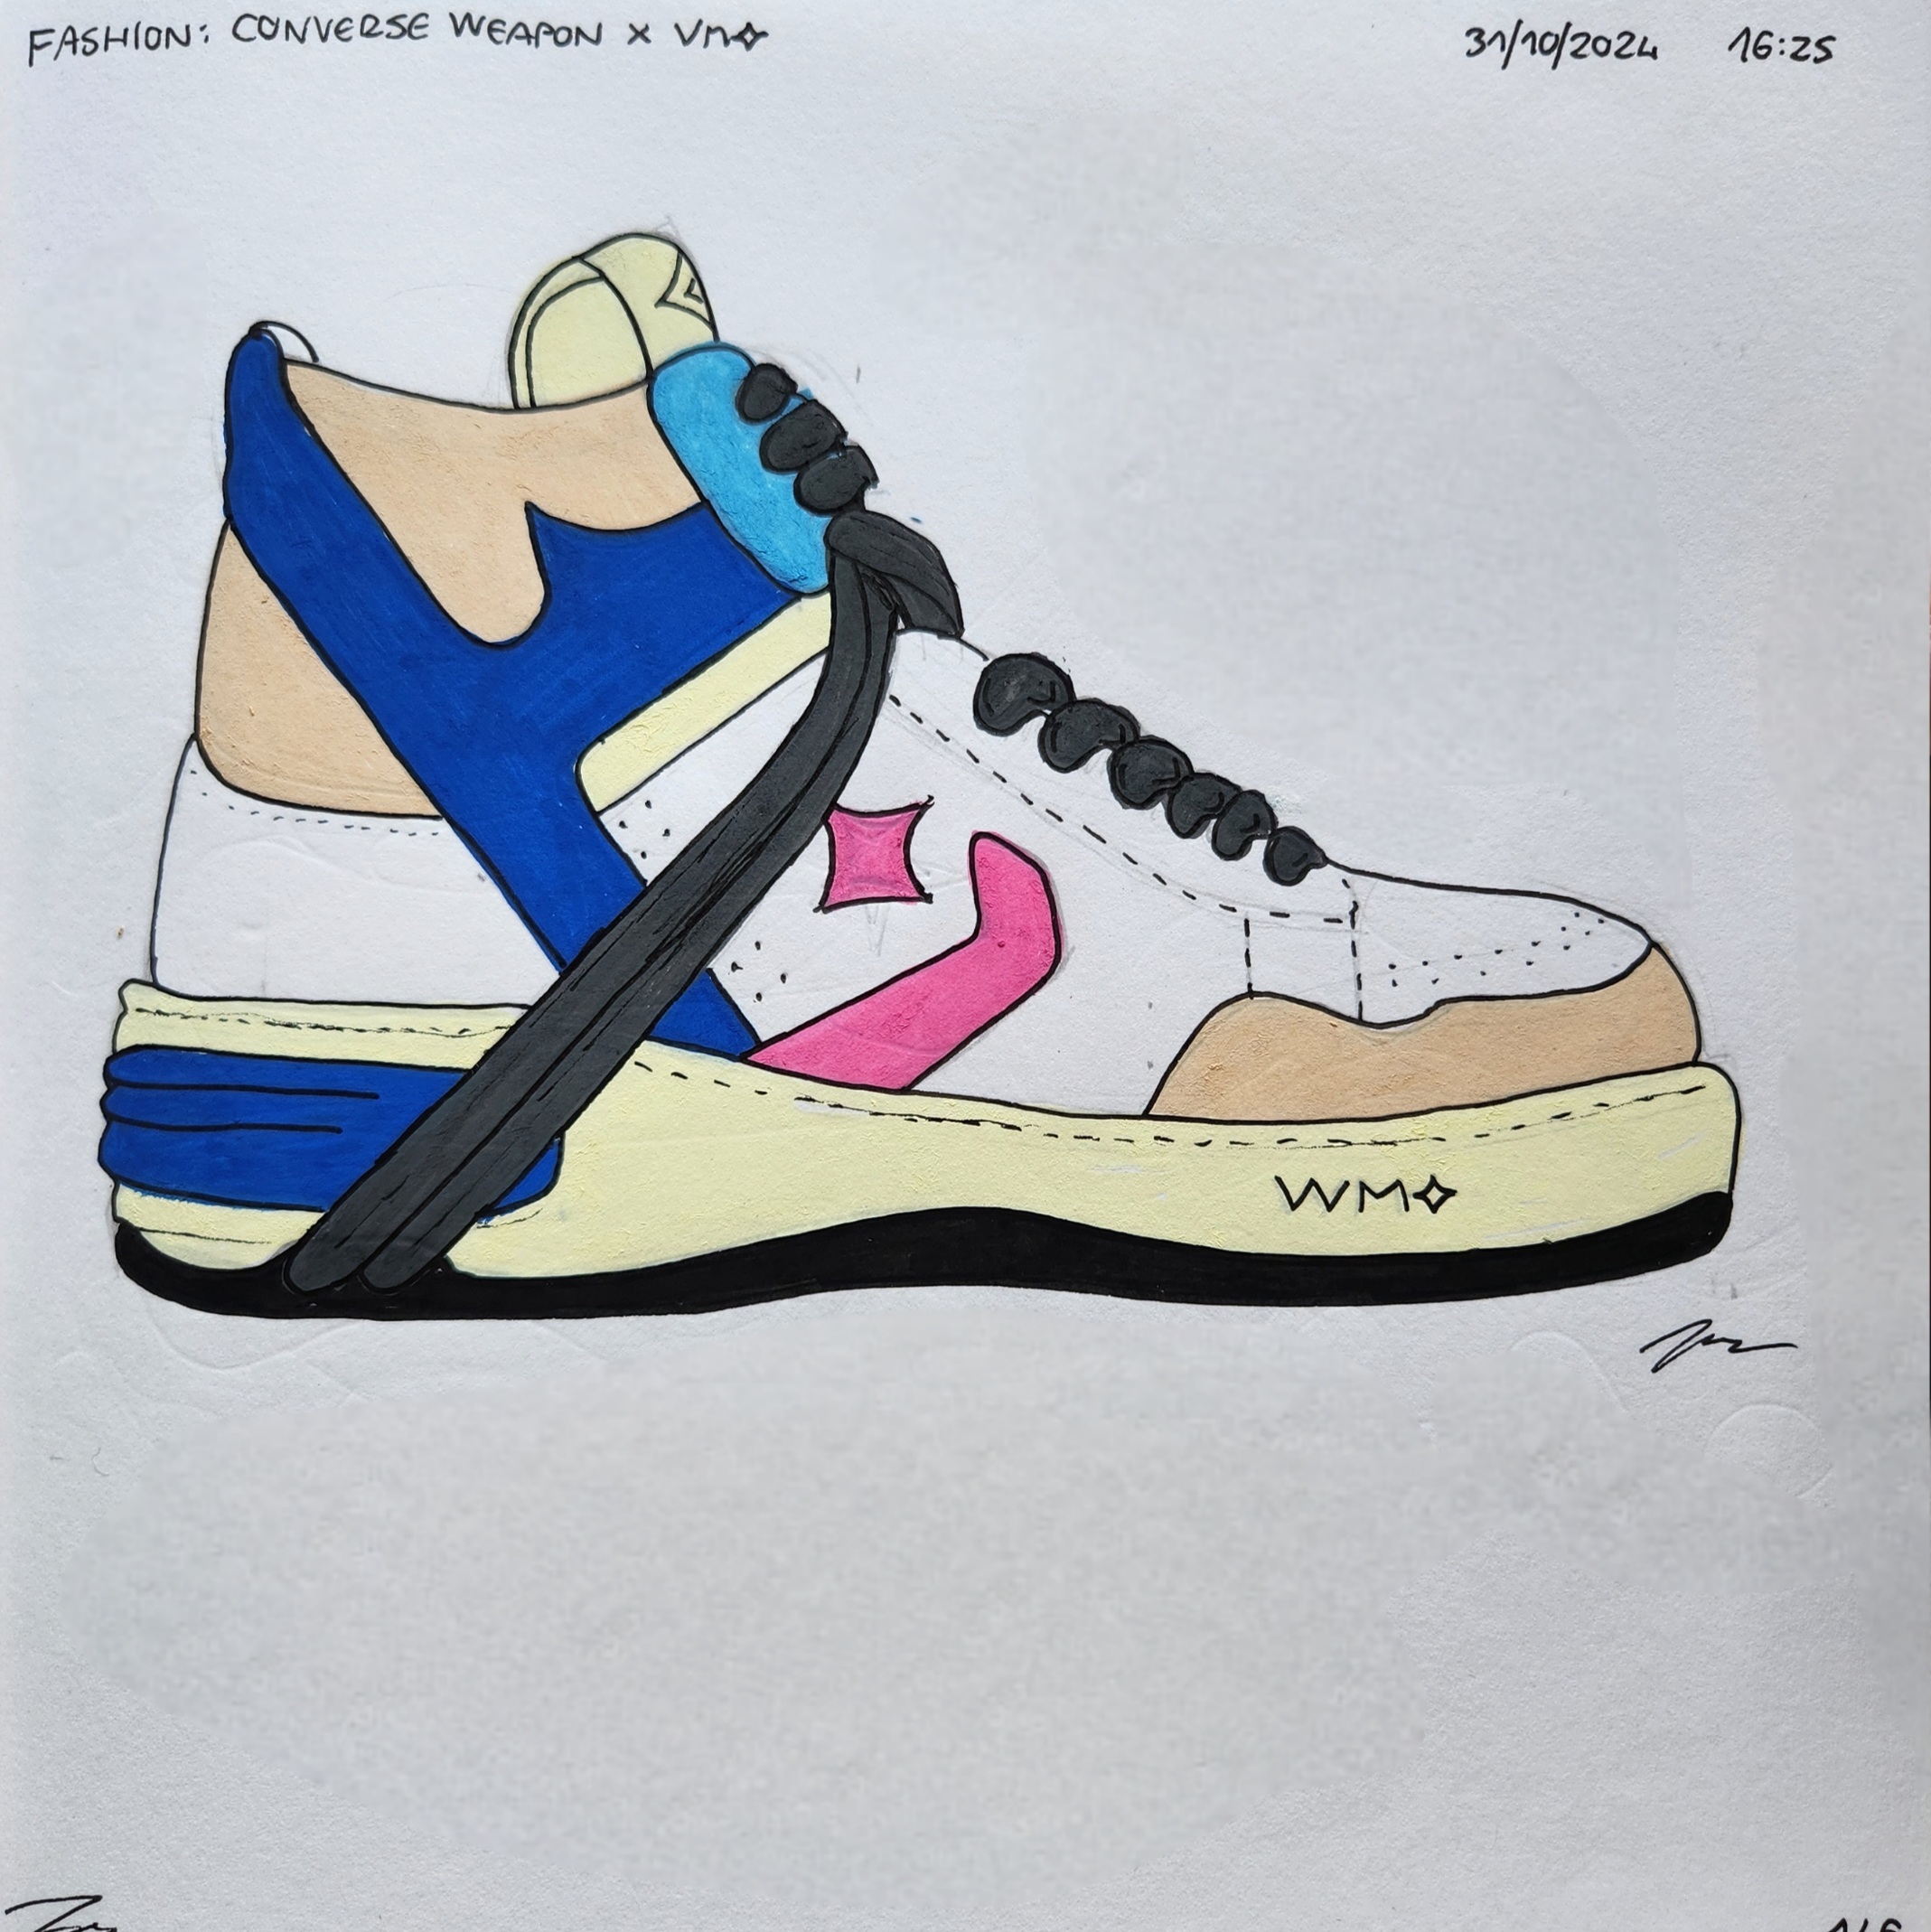 FASHION: CONVERSE WEAPON X VM✧ 31/10/2024 16:25
WM✧